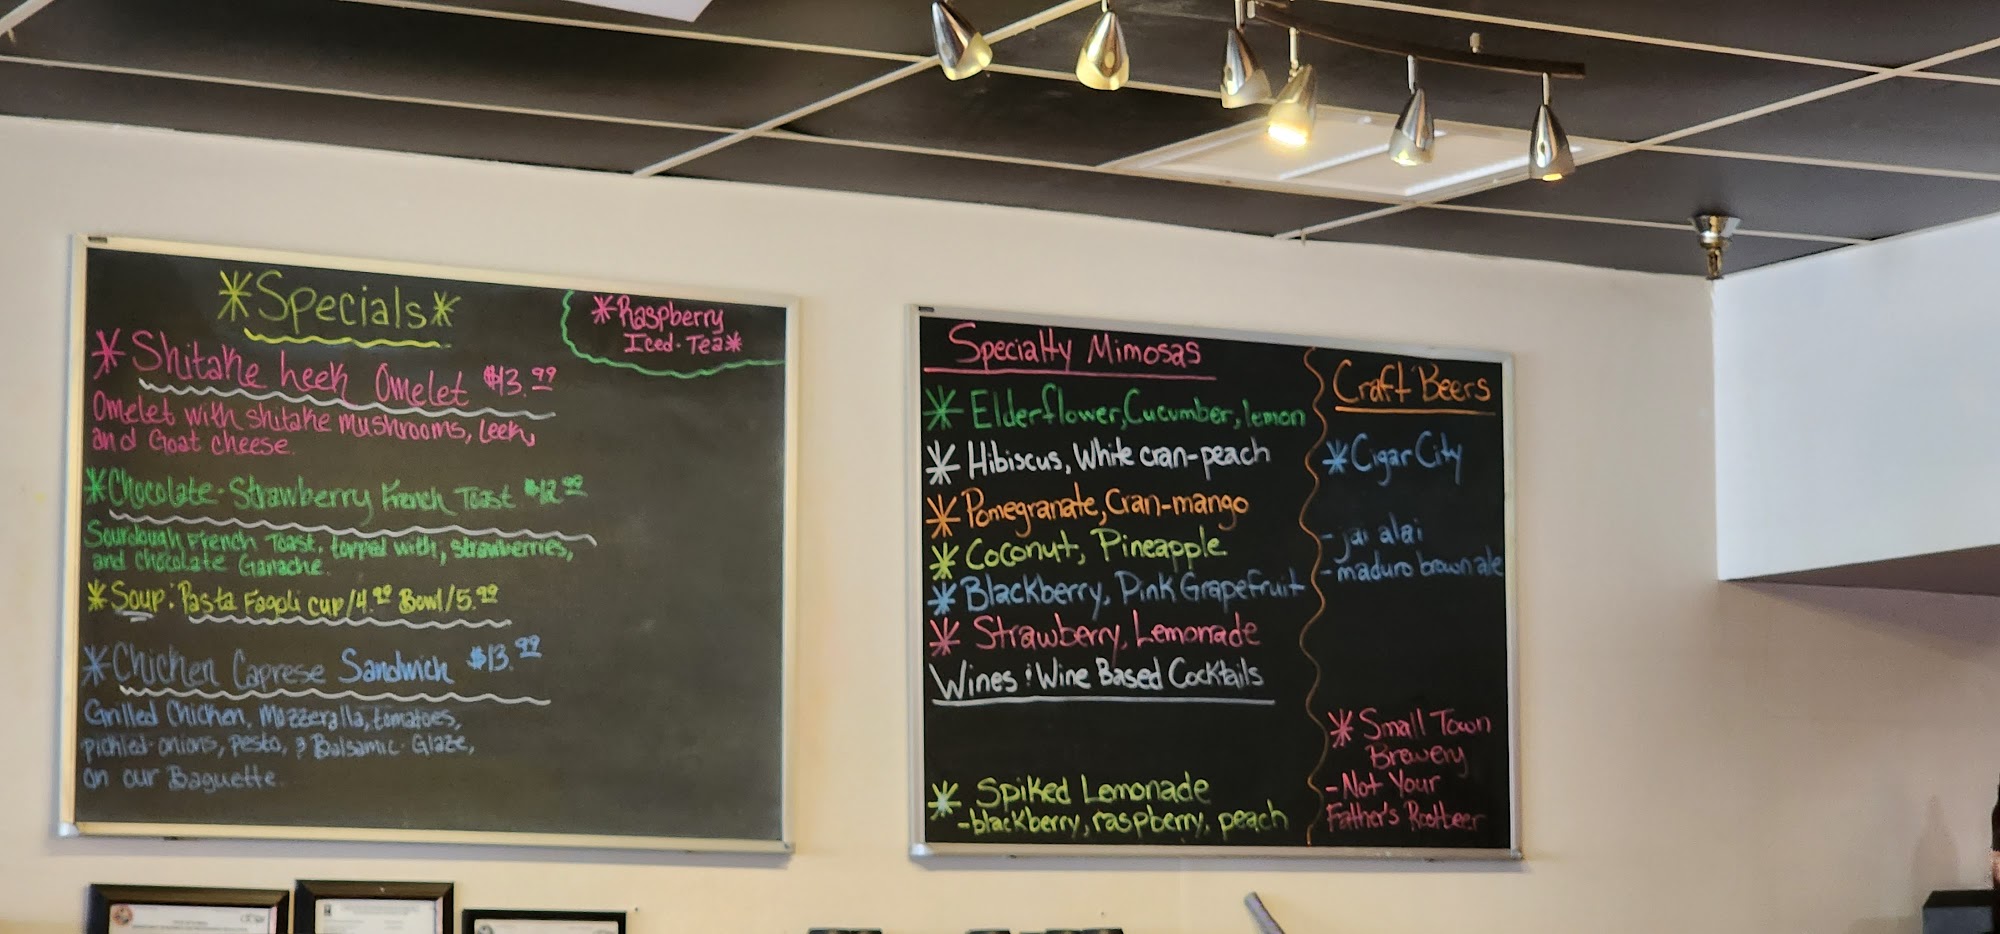 *Specials*
*Raspberry
Iced-Tea*
*Shitake leek Omelet $13.99
Omelet with shitake mushrooms, leek,
and Goat cheese.
*Chocolate-Strawberry French Toast $12.99
Sourdough French Toast, topped with, strawberries,
and chocolate Ganache.
*Soup: Pasta Fagoli cup/4.99 Bowl/5.99
*Chicken Caprese Sandwich $13.99
Grilled Chicken, Mozzeralla, tomatoes,
pickled-onions, pesto, & Balsamic-Glaze,
on our Baguette.
Specialty Mimosas
* Elderflower, Cucumber, lemon
* Hibiscus, White cran-peach
* Pomegranate, Cran-mango
* Coconut, Pineapple
* Blackberry, Pink Grapefruit
* Strawberry, Lemonade
Wines & Wine Based Cocktails
* Spiked Lemonade
-blackberry, raspberry, peach
Craft Beers
*Cigar City
- jai alai
- maduro brown ale
* Small Town
Brewery
-Not Your
Father's Rootbeer